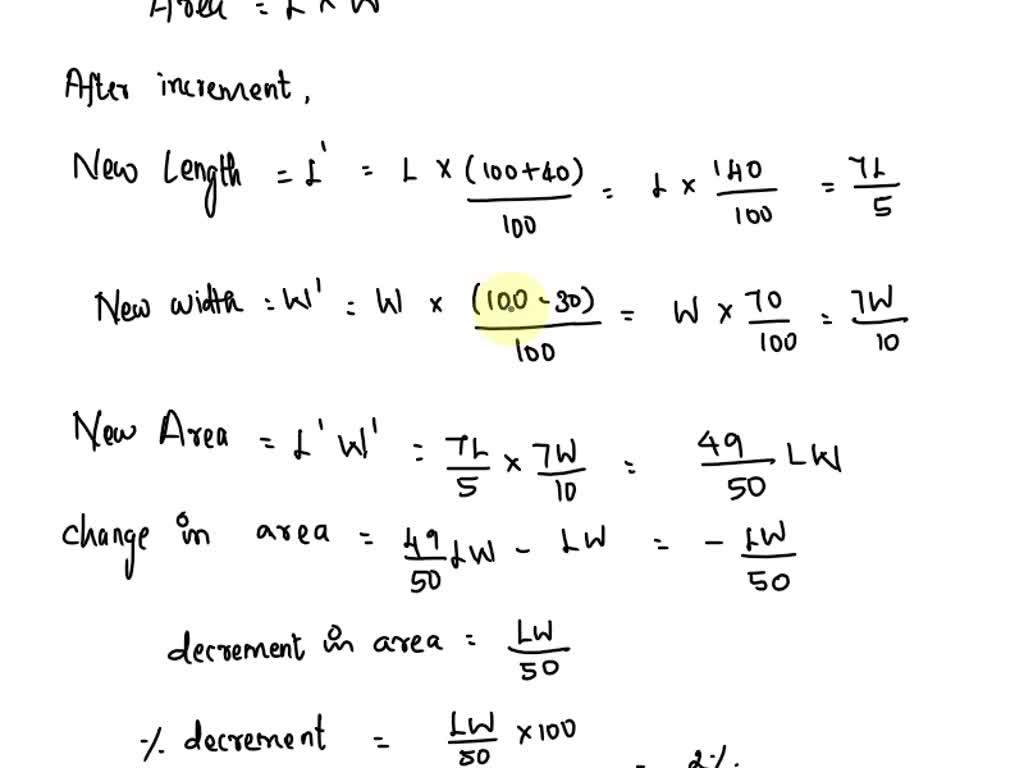 Area = L × W
After increment,
New Length = L' = L × (100+40)/100 = L × 140/100 = 7L/5
New width = W' = W × (100 - 30)/100 = W × 70/100 = 7W/10
New Area = L' W' = 7L/5 × 7W/10 = 49/50 LW
change in area = 49/50 LW - LW = - LW/50
decrement in area = LW/50
% decrement = LW/50 × 100 = 2%.